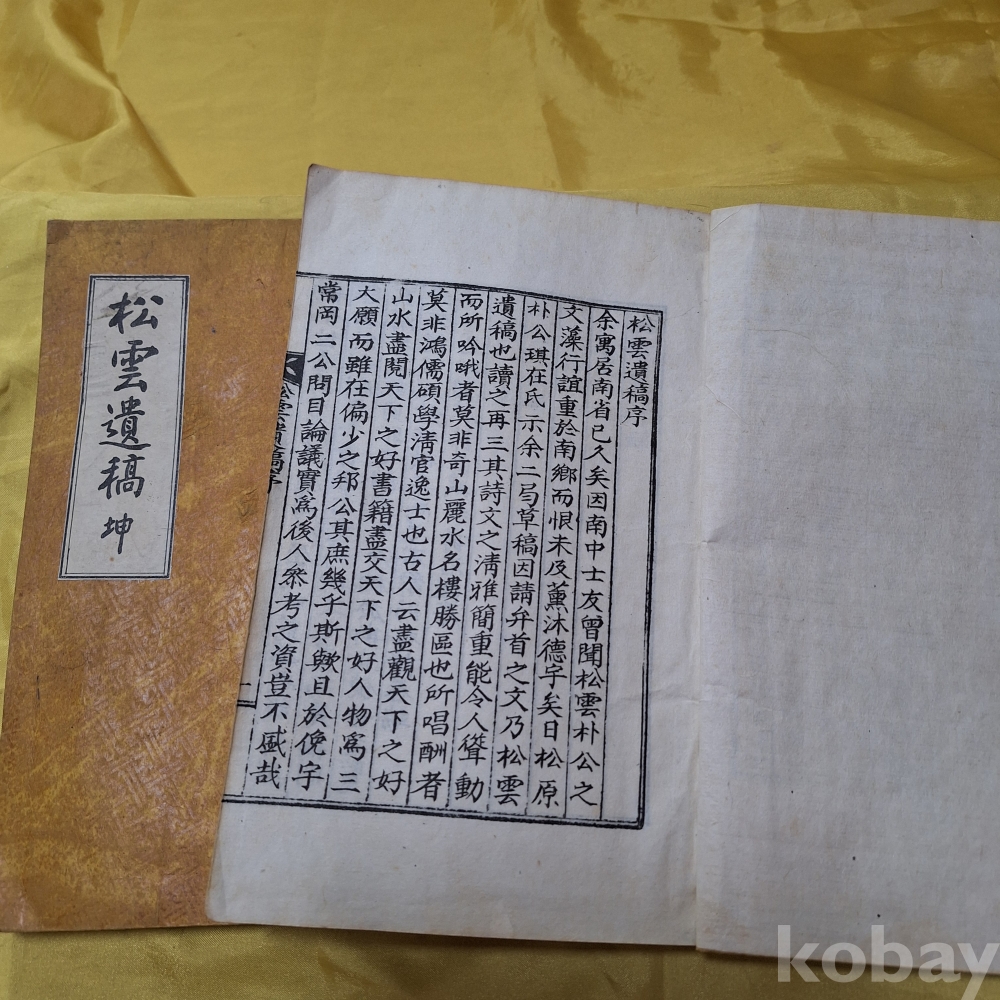 松雲遺稿 坤
松雲遺稿序
余寓居南省已久矣因南中士友曾聞松雲朴公之
文藻行誼重於南鄉而恨未及薰沐德宇矣日松原
朴公琪在氏示余二局草稿因請弁首之文乃松雲
遺稿也讀之再三其詩文之淸雅簡重能令人聳動
而所吟哦者莫非奇山麗水名樓勝區也所唱酬者
莫非鴻儒碩學淸官逸士也古人云盡觀天下之好
山水盡閱天下之好書籍盡交天下之好人物爲三
大願而雖在偏少之邦公其庶幾乎斯歟且於俛宇
常岡二公問目論議實爲後人叅考之資豈不盛哉
松雲遺稿序
一
kobay